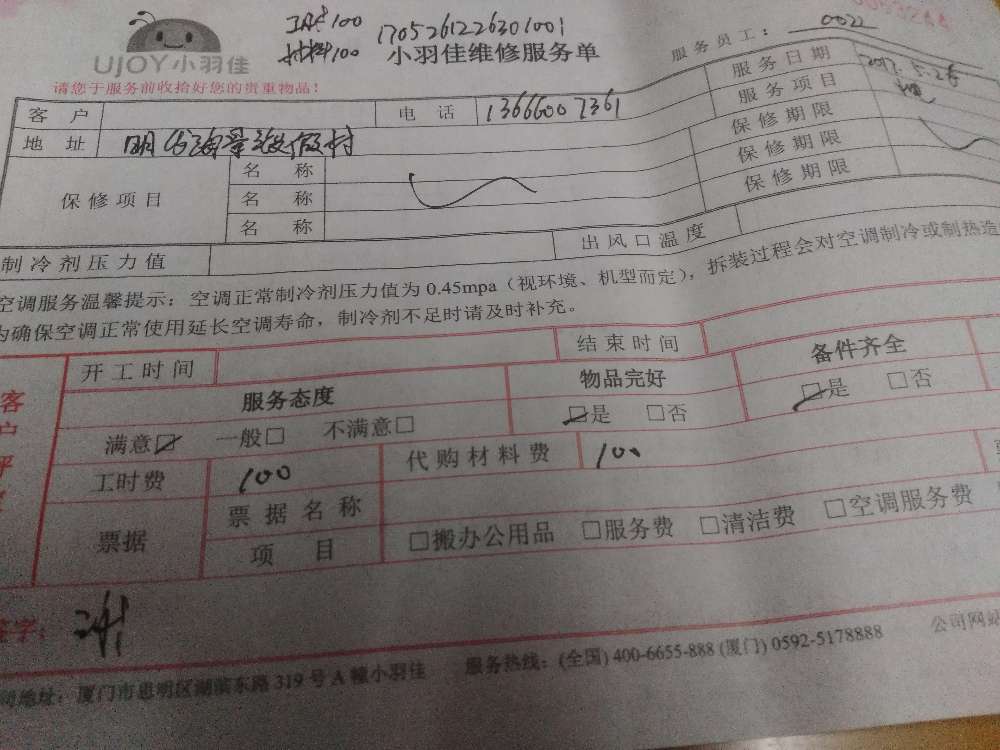 工时100
材料100
170526122630l001
UJOY小羽佳
小羽佳维修服务单
服务员工：0022
请您于服务前收拾好您的贵重物品！
服务日期 2017.5.26
客户
电话 13666007361
服务项目
地址
保修期限
保修项目
名称
保修期限
名称
保修期限
名称
制冷剂压力值
出风口温度
空调服务温馨提示：空调正常制冷剂压力值为 0.45mpa（视环境、机型而定），拆装过程会对空调制冷或制热造
为确保空调正常使用延长空调寿命，制冷剂不足时请及时补充。
开工时间
结束时间
客户
服务态度
物品完好
备件齐全
满意☑ 一般□ 不满意□
☑是 □否
☑是 □否
工时费 100
代购材料费 100
票据
票据名称
项目
□搬办公用品 □服务费 □清洁费 □空调服务费
签字：
司地址：厦门市思明区湖滨东路 319 号 A 幢小羽佳
服务热线：(全国) 400-6655-888 (厦门) 0592-5178888
公司网站